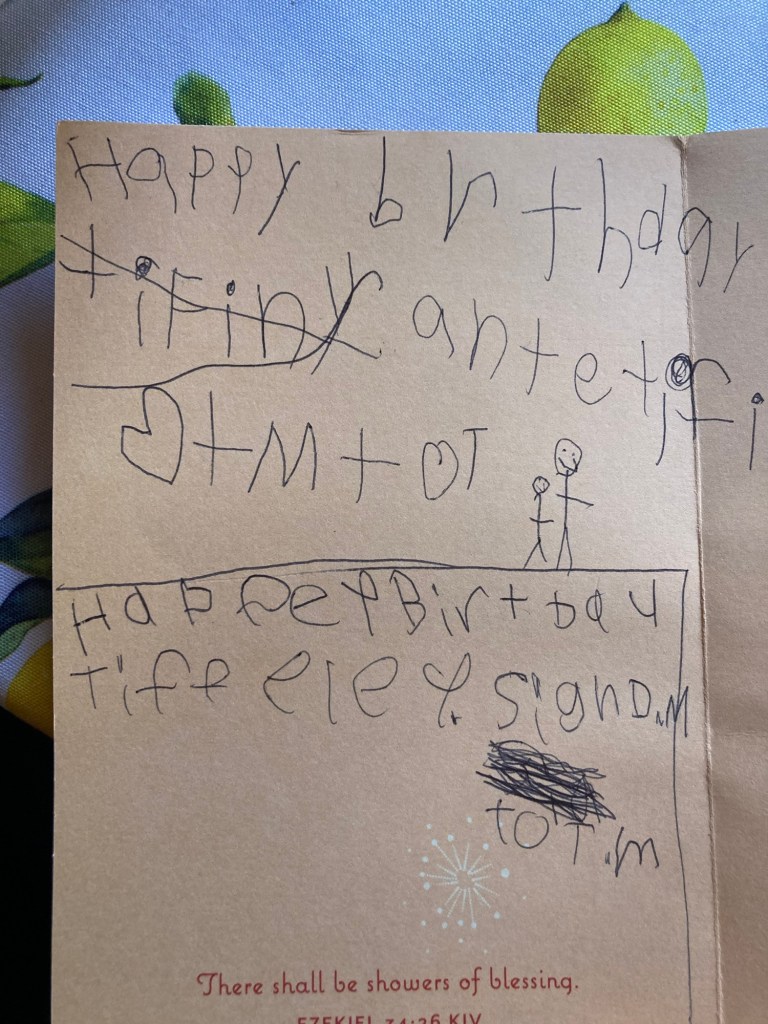 Happy brthday
tifiny ante tifi
♡ + M + OT
HappeeyBirtbay
Tiffeeley. Signd.M
to T.M
There shall be showers of blessing.
EZEKIEL 34:26 KJV